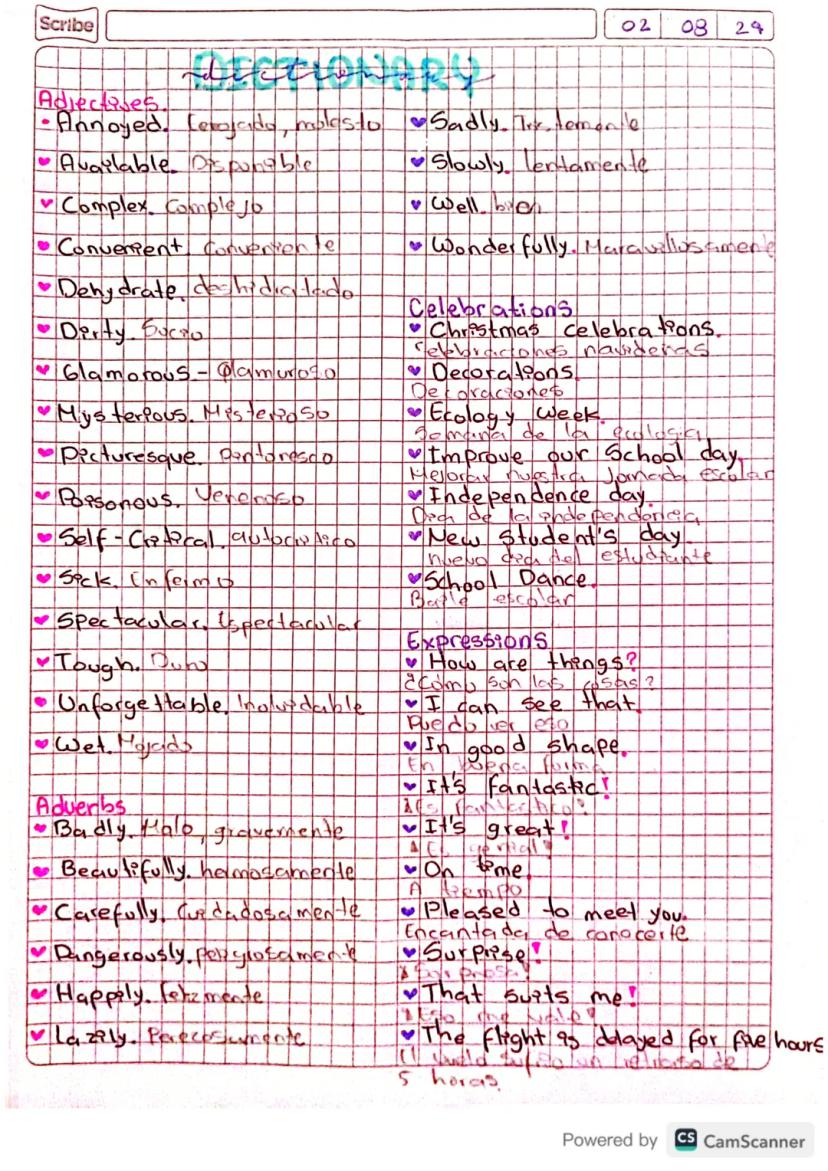 Scribe
02 08 24
DICTIONARY
Adjectives.
Annoyed. Enojado, molesto
Available. Disponible
Complex. Complejo
Convenient. Conveniente
Dehydrate. deshidratado
Dirty. Sucio
Glamorous - Glamuroso
Mysterious. Misterioso
Picturesque. Pintoresco
Poisonous. Venenoso
Self-Critical. autocritico
Sick. Enfermo
Spectacular. Espectacular
Tough. Duro
Unforgettable. Inolvidable
Wet. Mojado
Adverbs
Badly. Malo, gravemente
Beautifully. hermosamente
Carefully. Cuidadosamente
Dangerously. peligrosamente
Happily. felizmente
Lazily. Perezosamente
Sadly. Tristemente
Slowly. lentamente
Well. bien
Wonderfully. Maravillosamente
Celebrations
Christmas celebrations.
Celebraciones navideñas
Decorations.
Decoraciones
Ecology week.
Semana de la ecologia
Improve our School day.
Mejorar nuestra Jornada escolar
Independence day.
Dia de la independencia
New student's day.
nuevo dia del estudiante
School Dance.
Baile escolar
Expressions
How are things?
¿Cómo son las cosas?
I can see that.
Puedo ver eso
In good shape.
En buena forma
It's fantastic!
¡Es fantastico!
It's great!
¡Es genial!
On time.
A tiempo
Pleased to meet you.
Encantada de conocerte
Surprise!
¡Sorpresa!
That suits me!
¡Eso me vale!
The flight is delayed for five hours
El vuelo sufrio un retraso de
5 horas.
Powered by CS CamScanner